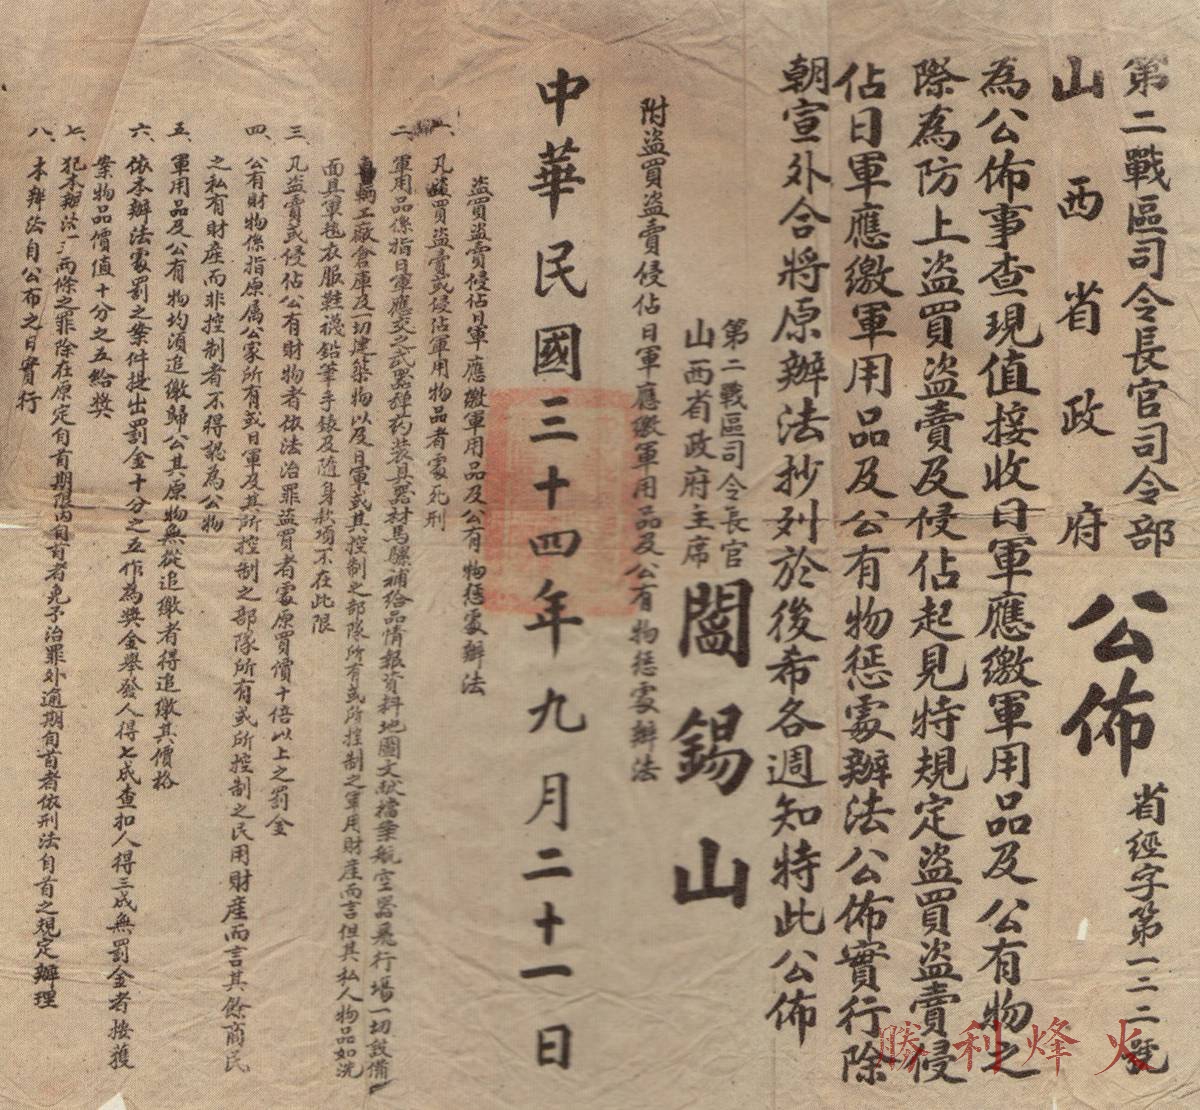 第二戰區司令長官司令部
山西省政府
公佈
省經字第一二二號
為公佈事查現值接收日軍應繳軍用品及公有物之
際為防止盜買盜賣及侵佔起見特規定盜買盜賣侵
佔日軍應繳軍用品及公有物惩處辦法公佈實行除
朝宣外合將原辦法抄列於後希各週知特此公佈
第二戰區司令長官
山西省政府主席
閻錫山
附盜買盜賣侵佔日軍應繳軍用品及公有物惩處辦法
中華民國三十四年九月二十一日
盜買盜賣侵佔日軍應繳軍用品及公有物惩處辦法
一、凡盜買盜賣或侵佔軍用物品者處死刑
二、軍用品係指日軍應交之武器弹药装具器材馬騾補给品情報資料地圖文献檔案航空器飛行場一切設備
工廠倉庫及一切建築物以及日軍或其控制之部隊所有或所控制之軍用財產而言但其私人物品如洗
面具軍毯衣服鞋襪鉛筆手錶及隨身款項不在此限
三、凡盜賣或侵佔公有財物者依法治罪盜買者處原買價十倍以上之罰金
四、公有財物係指原屬公家所有或日軍及其所控制之部隊所有或所控制之民用財產而言其餘商民
之私有財產而非控制者不得認為公物
五、軍用品及公有物均須追繳歸公其原物無從追繳者得追繳其價格
六、依本辦法處罰之案件提出罰金十分之五作為獎金舉發人得七成查扣人得三成無罰金者按獲
案物品價值十分之五給獎
七、犯本辦法一三兩條之罪除在原定自首期限內自首者免予治罪外逾期自首者依刑法自首之規定辦理
八、本辦法自公布之日實行
勝利烽火